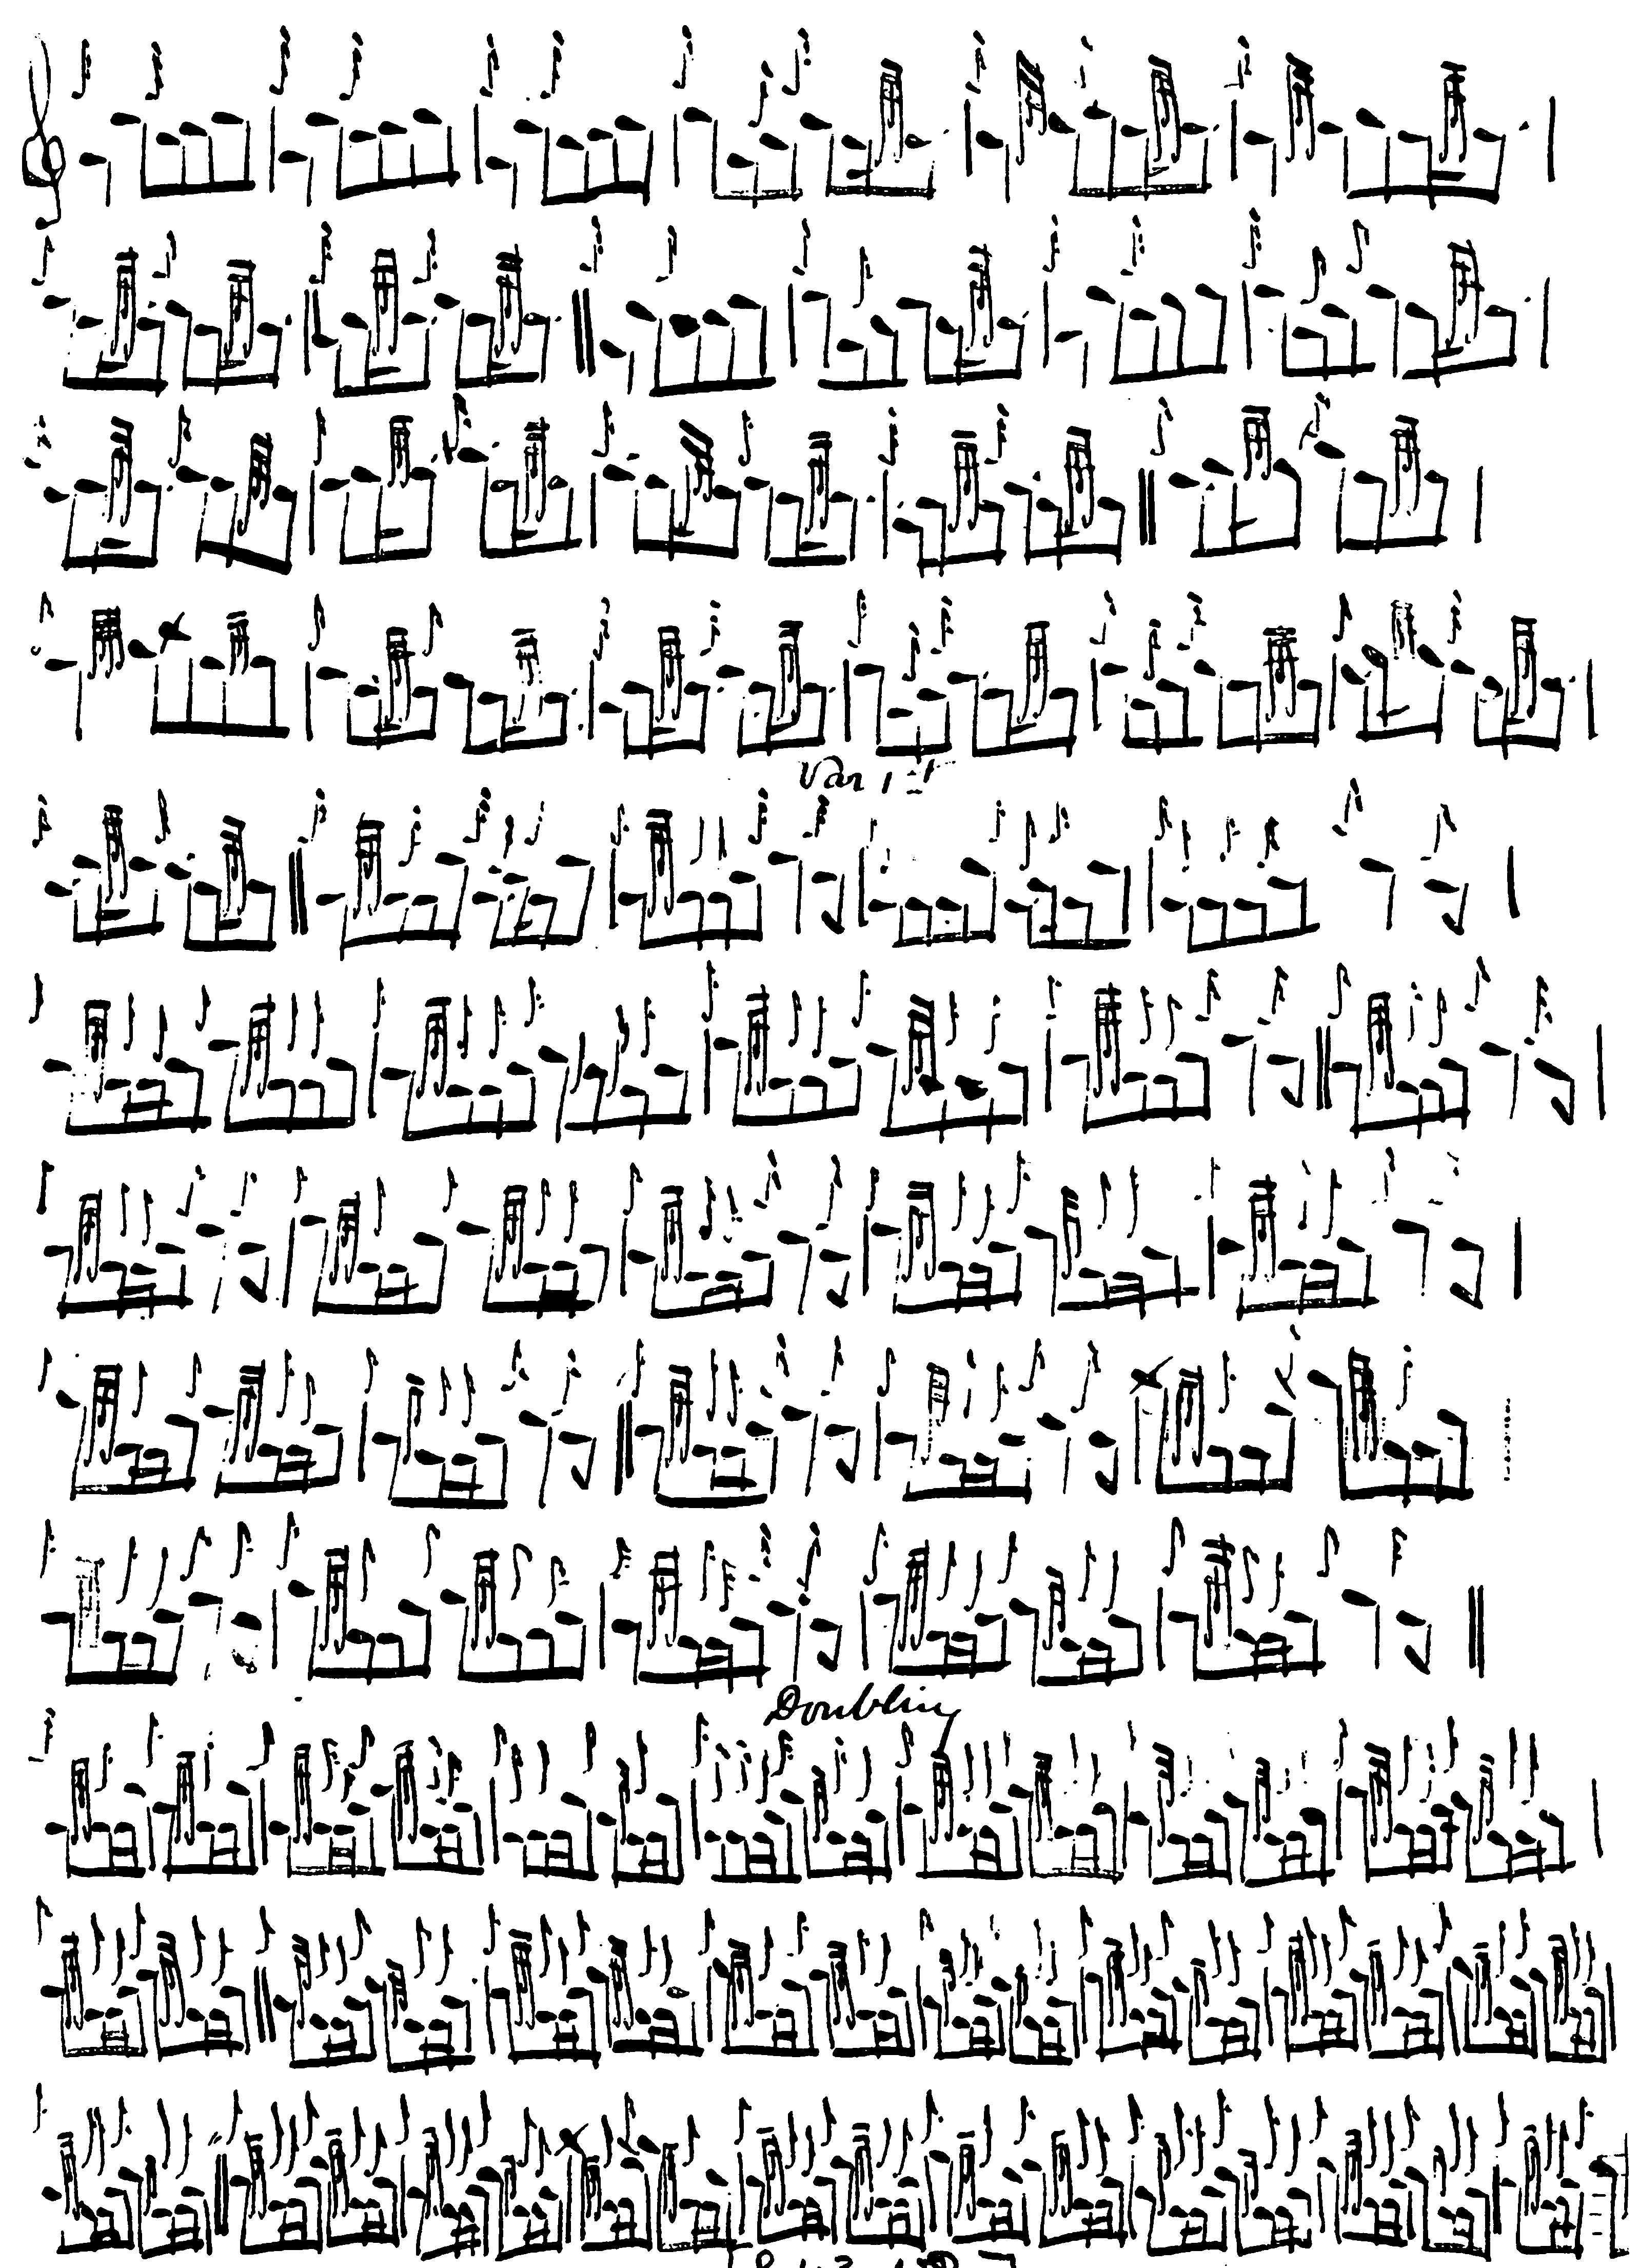 Var 1st
Doubling